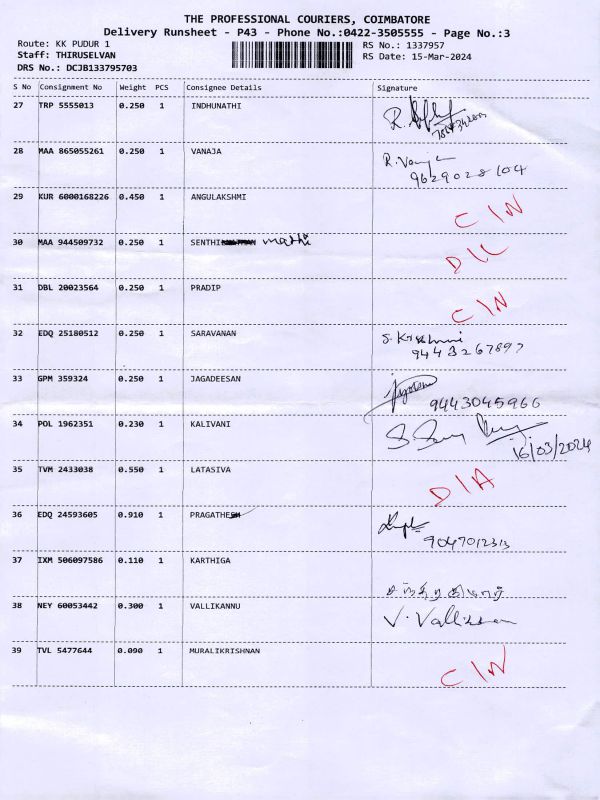 THE PROFESSIONAL COURIERS, COIMBATORE
Delivery Runsheet - P43 - Phone No.:0422-3505555 - Page No.:3
Route: KK PUDUR 1 RS No.: 1337957
Staff: THIRUSELVAN RS Date: 15-Mar-2024
DRS No.: DCJB133795703
S No Consignment No Weight PCS Consignee Details Signature
27 TRP 5555013 0.250 1 INDHUNATHI R.
28 MAA 865055261 0.250 1 VANAJA R.
9629028104
29 KUR 6000168226 0.450 1 ANGULAKSHMI C/N
30 MAA 944509732 0.250 1 SENTHI mathi D/L
31 DBL 20023564 0.250 1 PRADIP C/N
32 EDQ 25180512 0.250 1 SARAVANAN
9443267897
33 GPM 359324 0.250 1 JAGADEESAN
9443045966
34 POL 1962351 0.230 1 KALIVANI
16/03/2024
35 TVM 2433038 0.550 1 LATASIVA D/A
36 EDQ 24593605 0.910 1 PRAGATHE
9047012313
37 IXM 506097586 0.110 1 KARTHIGA
38 NEY 60053442 0.300 1 VALLIKANNU V.
39 TVL 5477644 0.090 1 MURALIKRISHNAN C/N